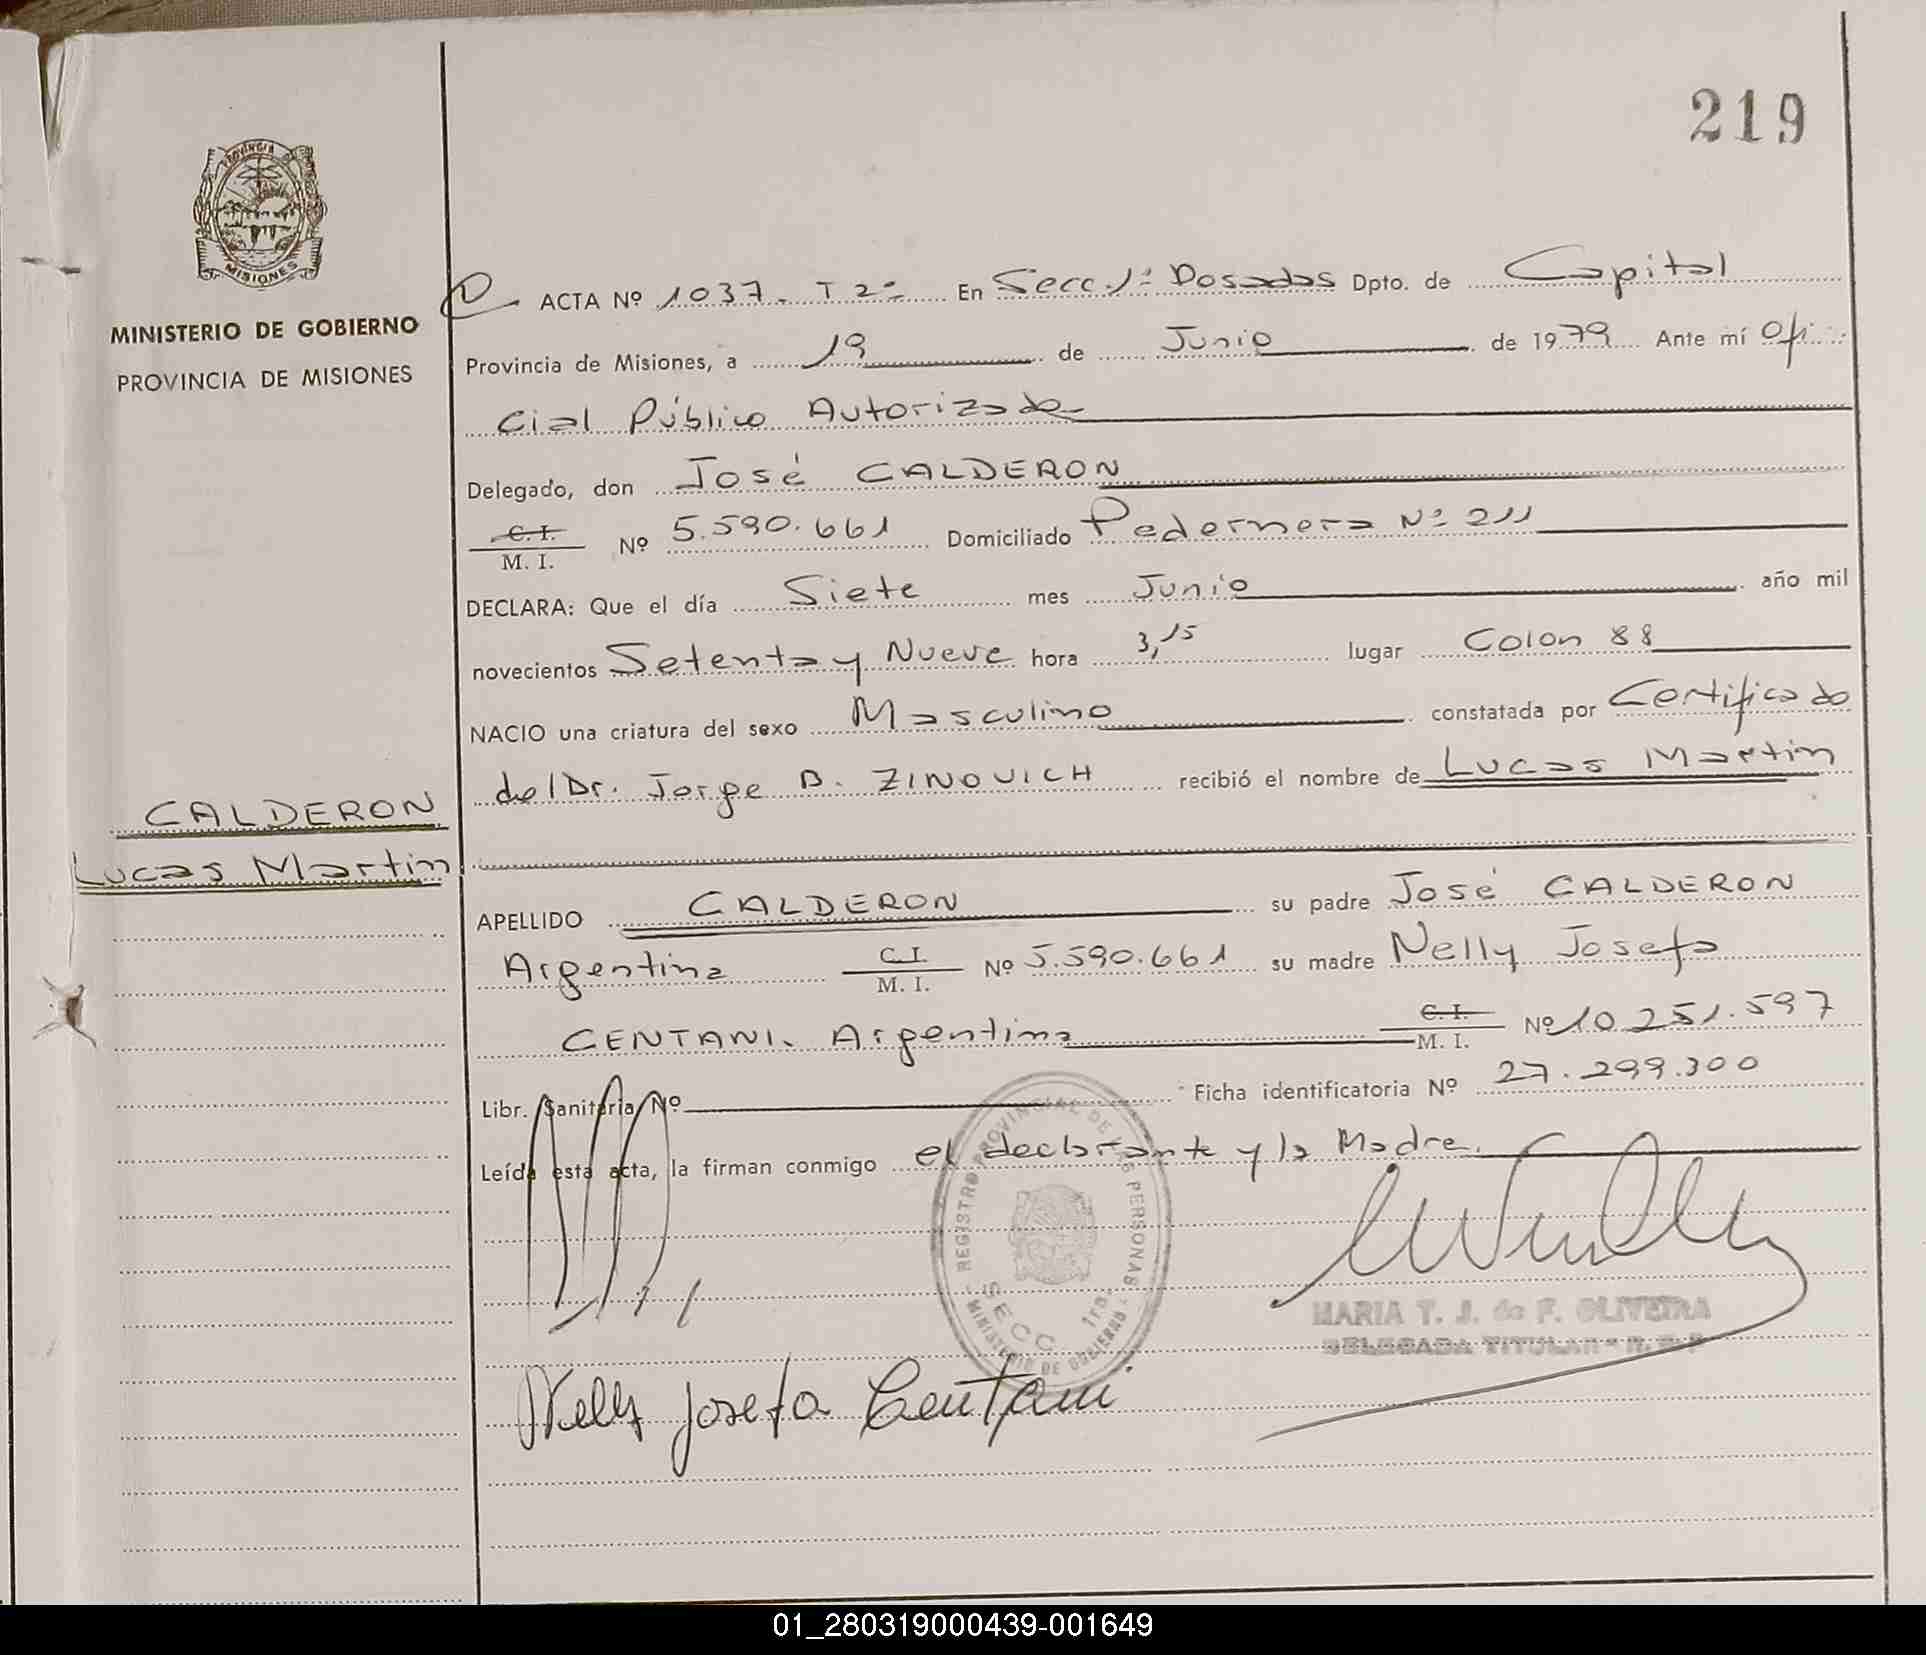 219
PROVINCIA DE
MISIONES
MINISTERIO DE GOBIERNO
PROVINCIA DE MISIONES
ACTA Nº 1037. T 2º En Secc. 1ª Posadas Dpto. de Capital
Provincia de Misiones, a 19 de Junio de 1979 Ante mí Ofi
cial Público Autorizado
Delegado, don José CALDERON
C.I. / M. I. Nº 5.590.661 Domiciliado Pedernera Nº 211
DECLARA: Que el día Siete mes Junio año mil
novecientos Setenta y Nueve hora 3,15 lugar Colon 88
NACIO una criatura del sexo Masculino constatada por Certificado
del Dr. Jorge B. ZINOVICH recibió el nombre de Lucas Martin
CALDERON
Lucas Martin
APELLIDO CALDERON su padre José CALDERON
Argentina C.I. / M. I. Nº 5.590.661 su madre Nelly Josefa
CENTANI. Argentina C.I. / M. I. Nº 10.251.597
Libr. Sanitaria Nº Ficha identificatoria Nº 27.299.300
Leída esta acta, la firman conmigo el declarante y la Madre.
REGISTRO PROVINCIAL DE LAS PERSONAS
SECC 1ra.
MINISTERIO DE GOBIERNO
MARIA T. J. de F. OLIVEIRA
DELEGADA TITULAR - R. P. P
Nelly Josefa Centani
01_280319000439-001649